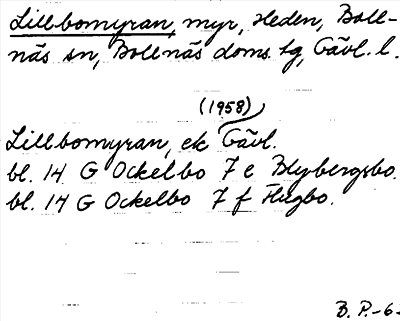 Lillbomyran, myr, Heden, Boll-
näs sn, Bollnäs doms. tg, Gävl. l.
(1958)
Lillbomyran, ek Gävl.
bl. 14 G Ockelbo 7 e Blybergsbo.
bl. 14 G Ockelbo 7 f Flugbo.
B. P.-63